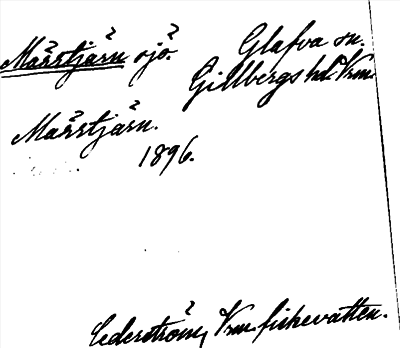 Märrtjärn sjö. Glafva sn.
Gillbergs hd. Vrm.
Märrtjärn.
1896.
Cederström, Vrm. fiskevatten.